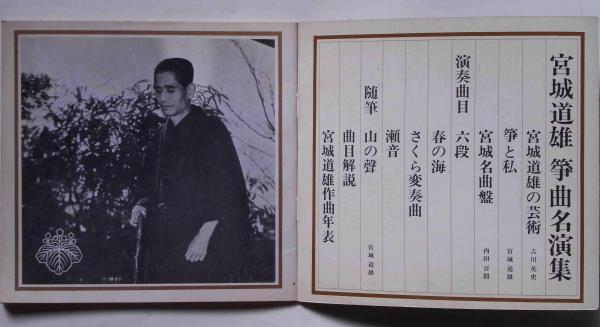 宮城道雄 箏曲名演集
宮城道雄の芸術 吉川英史
箏と私 宮城道雄
宮城名曲盤 内田百閒
演奏曲目 六段
春の海
さくら変奏曲
瀬音
随筆 山の聲 宮城道雄
曲目解説
宮城道雄作曲年表